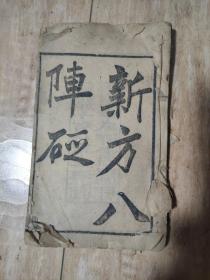 新方八
陣砭